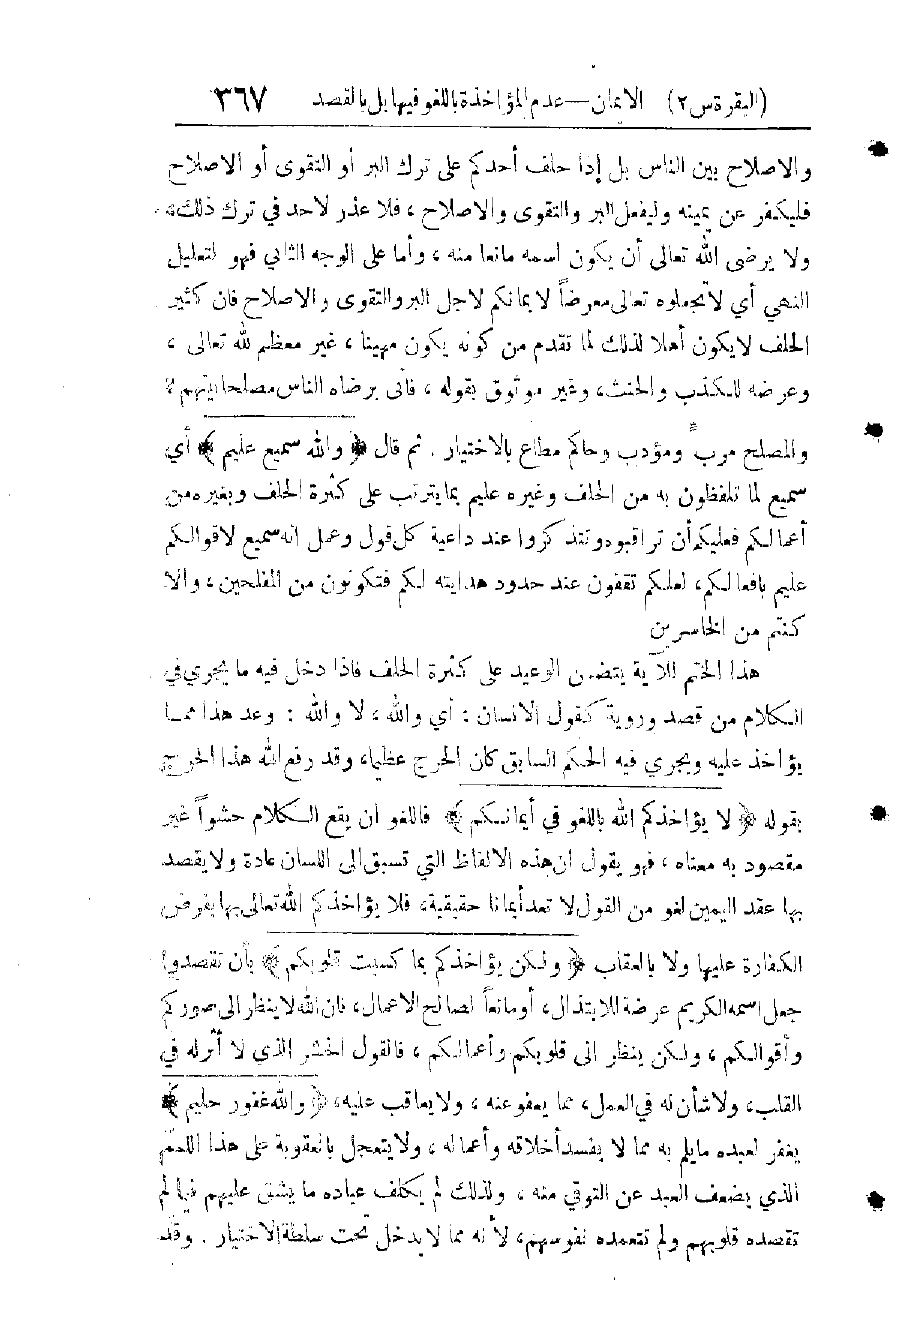 (البقرة س ٢) الايمان — عدم المؤاخذة باللغو فيها بل بالقصد ٣٦٧
والاصلاح بين الناس بل إذا حلف أحدكم على ترك البر أو التقوى أو الاصلاح
فليكفر عن يمينه وليفعل البر والتقوى والاصلاح ، فلا عذر لاحد في ترك ذلك ،
ولا يرضى الله تعالى أن يكون اسمه مانعا منه ، وأما على الوجه الثاني فهو لتعليل
النهي أي لا تجعلوه تعالى معرضاً لايمانكم لاجل البر والتقوى والاصلاح فان كثير
الحلف لا يكون أهلا لذلك لما تقدم من كونه يكون مهينا ، غير معظم لله تعالى ،
وعرضه للكذب والحنث ، وغير موثوق بقوله ، فأنى يرضاه الناس مصلحا بينهم ؟
والمصلح مربّ ومؤدب وحاكم مطاع بالاختيار . ثم قال ﴿ والله سميع عليم ﴾ أي
سميع لما تلفظون به من الحلف وغيره عليم بما يترتب على كثرة الحلف وبغيره من
أعمالكم فعليكم أن تراقبوه وتتذكروا عند داعية كل قول وعمل انه سميع لاقوالكم
عليم بافعالكم ، لعلكم تقفون عند حدود هدايته لكم فتكونون من المفلحين ، والا
كنتم من الخاسرين
هذا الختم للآية يتضمن الوعيد على كثرة الحلف فاذا دخل فيه ما يجري في
الكلام من قصد وروية كقول الانسان : أي والله ، لا والله : وعد هذا مما
يؤاخذ عليه ويجري فيه الحكم السابق كان الحرج عظيما ، وقد رفع الله هذا الحرج
بقوله ﴿ لا يؤاخذكم الله باللغو في أيمانكم ﴾ فاللغو ان يقع الكلام حشواً غير
مقصود به معناه ، فهو يقول ان هذه الالفاظ التي تسبق الى اللسان عادة ولا يقصد
بها عقد اليمين لغو من القول لا تعد أيمانا حقيقية ، فلا يؤاخذكم الله تعالى بها بفرض
الكفارة عليها ولا بالعقاب ﴿ ولكن يؤاخذكم بما كسبت قلوبكم ﴾ بأن تقصدوا
جعل اسمه الكريم عرضة للابتذال ، أو مانعاً لصالح الاعمال ، فان الله لا ينظر الى صوركم
وأقوالكم ، ولكن ينظر الى قلوبكم وأعمالكم ، فالقول الحشو الذي لا أثر له في
القلب ، ولا شأن له في العمل ، مما يعفو عنه ، ولا يعاقب عليه ، ﴿ والله غفور حليم ﴾
يغفر لعبده ما يلم به مما لا يفسد أخلاقه وأعماله ، ولا يتعجل بالعقوبة على هذا اللمم
الذي يضعف العبد عن التوقي منه ، ولذلك لم يكلف عباده ما يشق عليهم فيما لم
تقصده قلوبهم ولم تتعمده نفوسهم ، لأنه مما لا يدخل تحت سلطة الاختيار . وقد